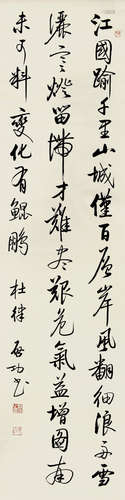 江國踰千里山城僅百層岸風翻細浪舟雪
灑寒燈留滯才難盡艱危氣益增圖南
未可料變化有鯤鵬 杜律 啟功書